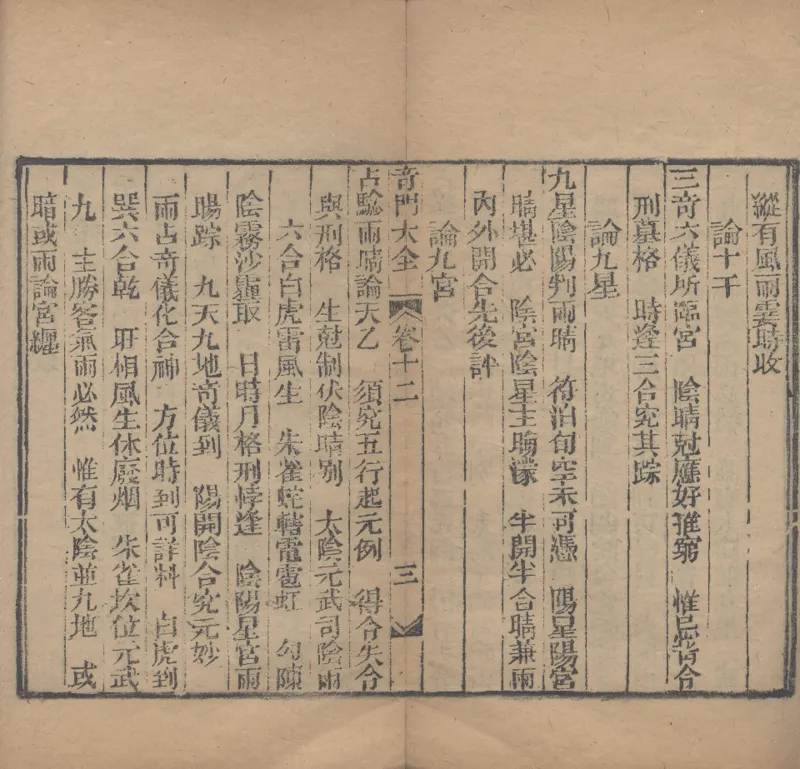 縱有風雨雲易收
論十干
三奇六儀所臨宮 陰晴尅應好推窮 惟忌背合
刑墓格 時逢三合究其踪
論九星
九星陰陽判雨晴 符泊旬空未可憑 陽星陽宮
晴堪必 陰宮陰星主晦濛 半開半合晴兼雨
內外開合先後評
論九宮
奇門大全 卷十二 三
占驗雨晴論天乙 須究五行起元例 得令失令
與刑格 生尅制伏陰晴別 太陰元武司陰雨
六合白虎雷風生 朱雀蛇轄電雹虹 勾陳
陰霧沙霾取 日時月格刑悖逢 陰陽星宮雨
暘踪 九天九地奇儀到 陽開陰合究元妙
雨占奇儀化合神 方位時到可詳料 白虎到
巽六合乾 旺相風生休廢烟 朱雀坎位元武
九 主勝客氣雨必然 惟有太陰並九地 或
暗或雨論宮纏